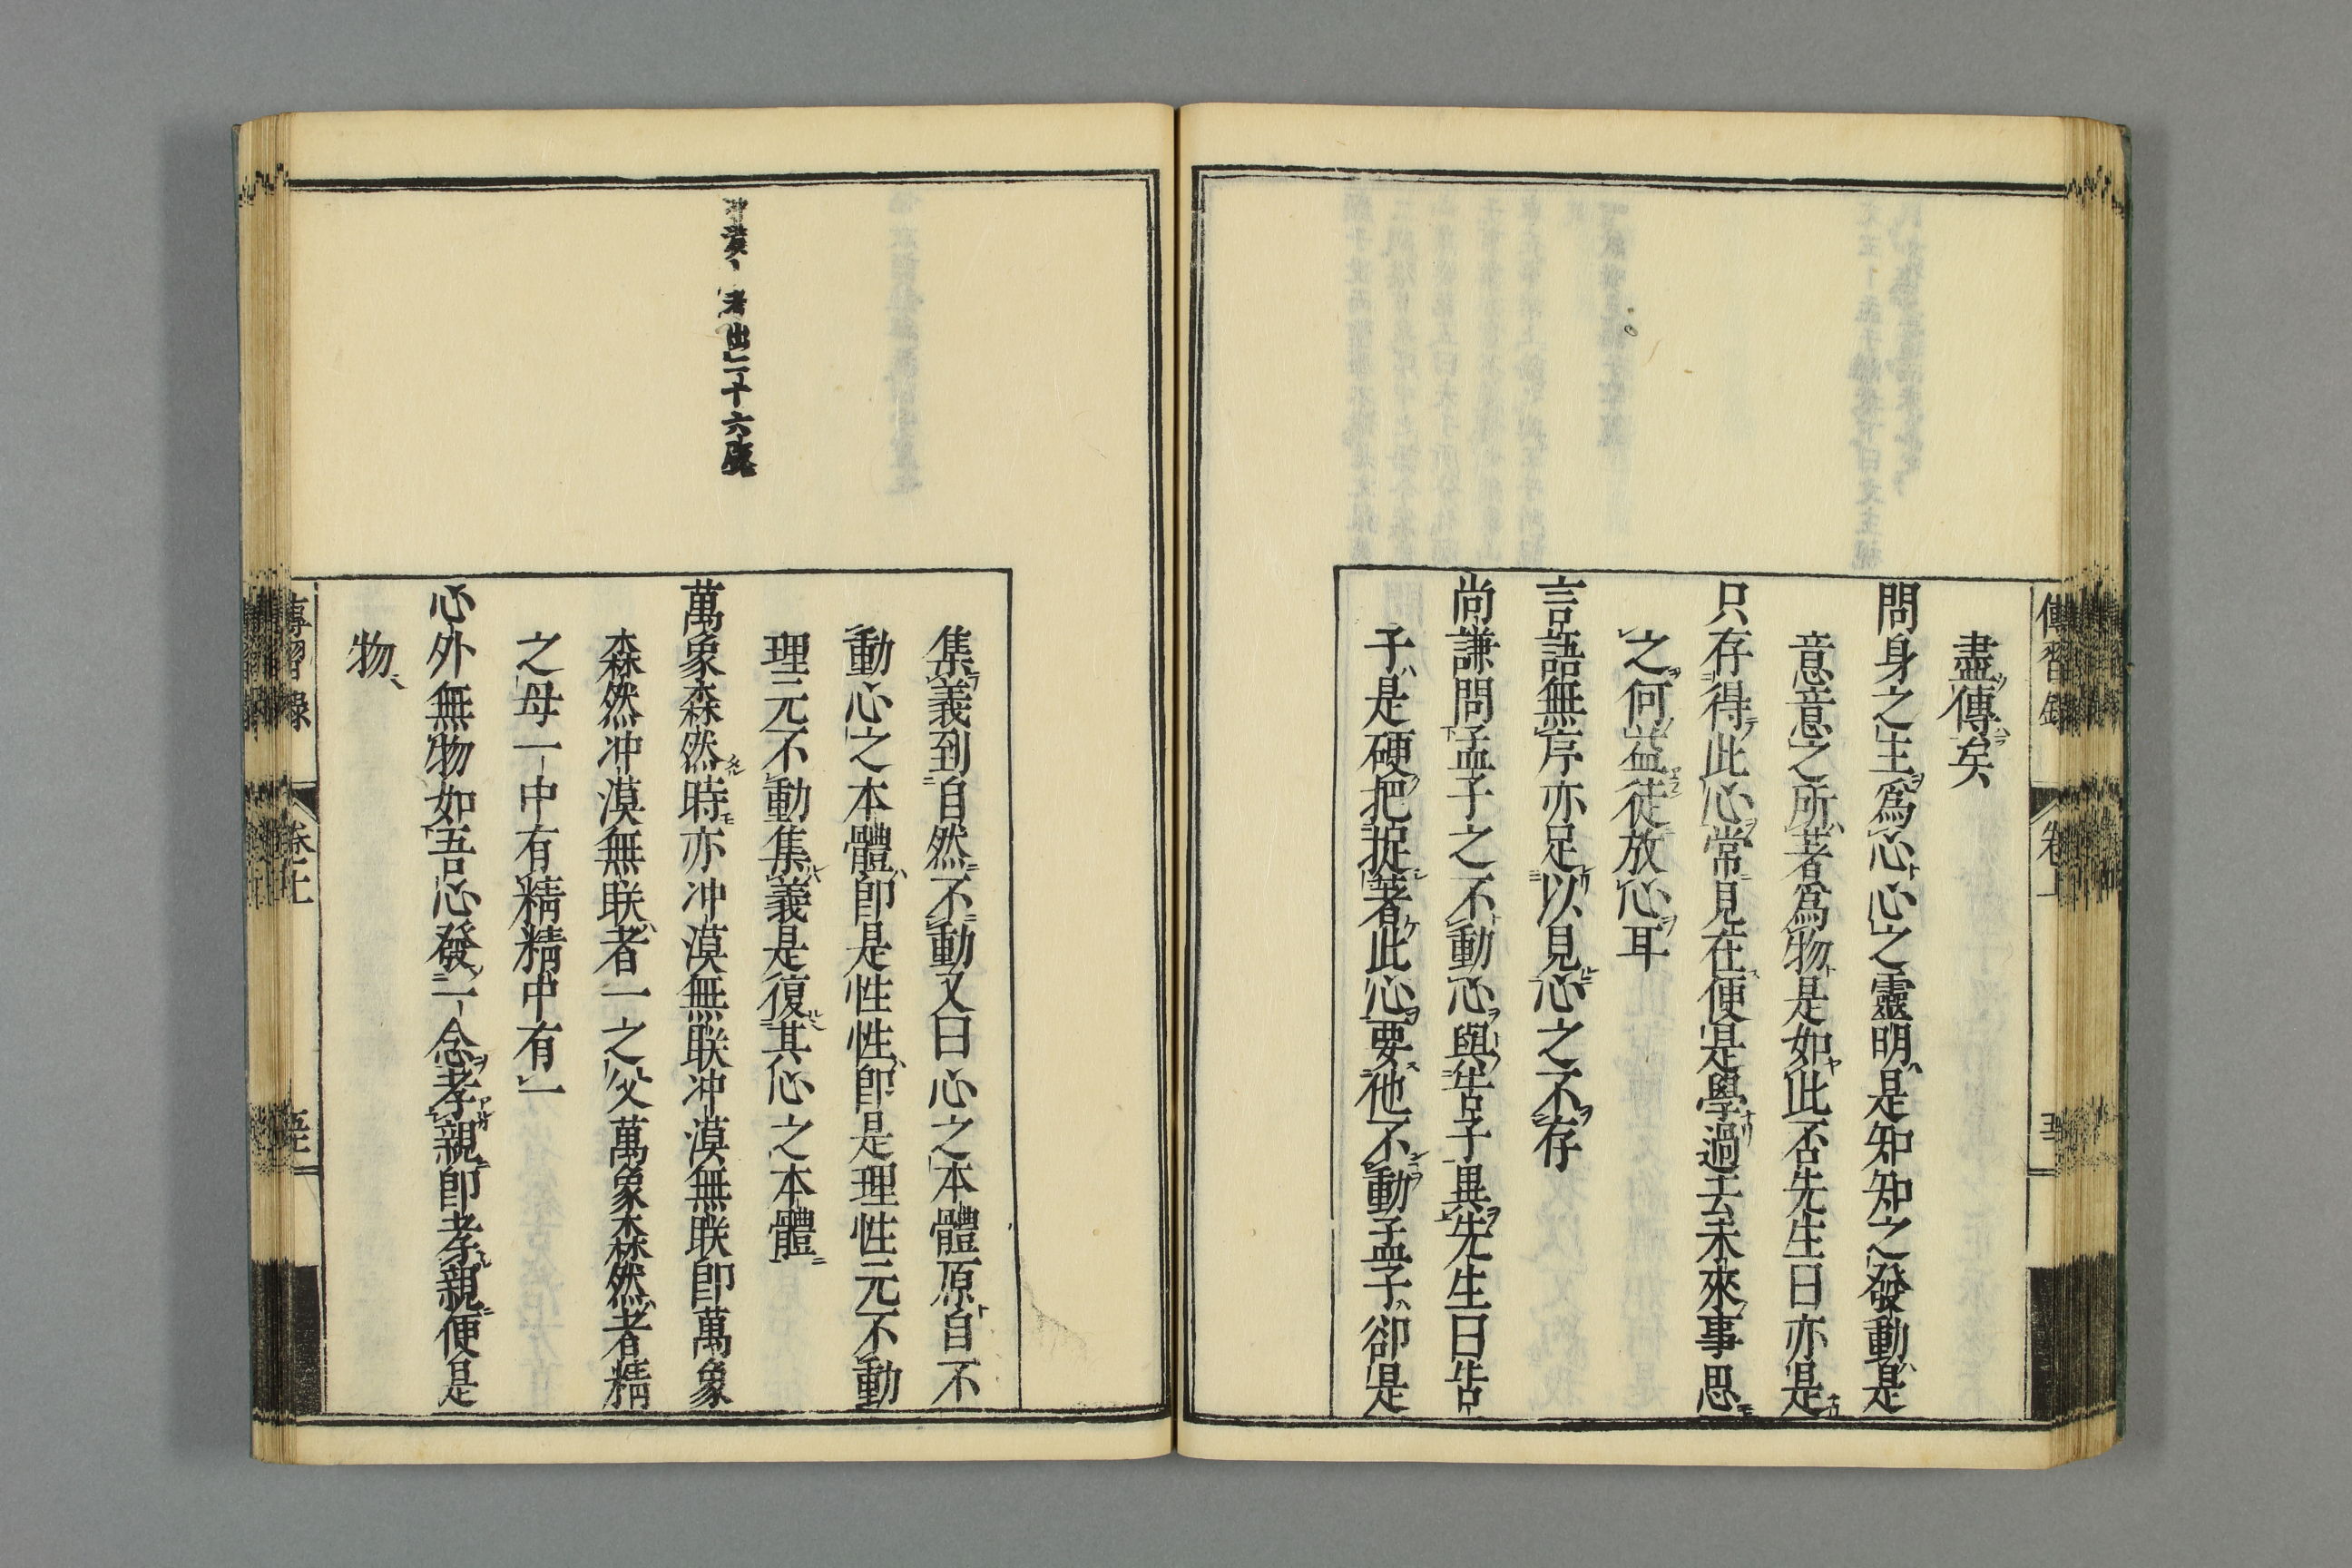 傳習錄
卷上
盡傳矣
問身之主爲心心之靈明是知知之發動是
意意之所著爲物是如此否先生曰亦是
只存得此心常見在便是學過去未來事思
之何益徒放心耳
言語無序亦足以見心之不存
尚謙問孟子之不動心與告子異先生曰告
子是硬把捉著此心要他不動孟子卻是
集義到自然不動又曰心之本體原自不
動心之本體卽是性性卽是理性元不動
理元不動集義是復其心之本體
冲漠丶者出二十六處
萬象森然時亦冲漠無朕冲漠無朕卽萬象
森然冲漠無朕者一之父萬象森然者精
之母一中有精精中有一
心外無物如吾心發一念孝親卽孝親便是
物
傳習錄
卷上